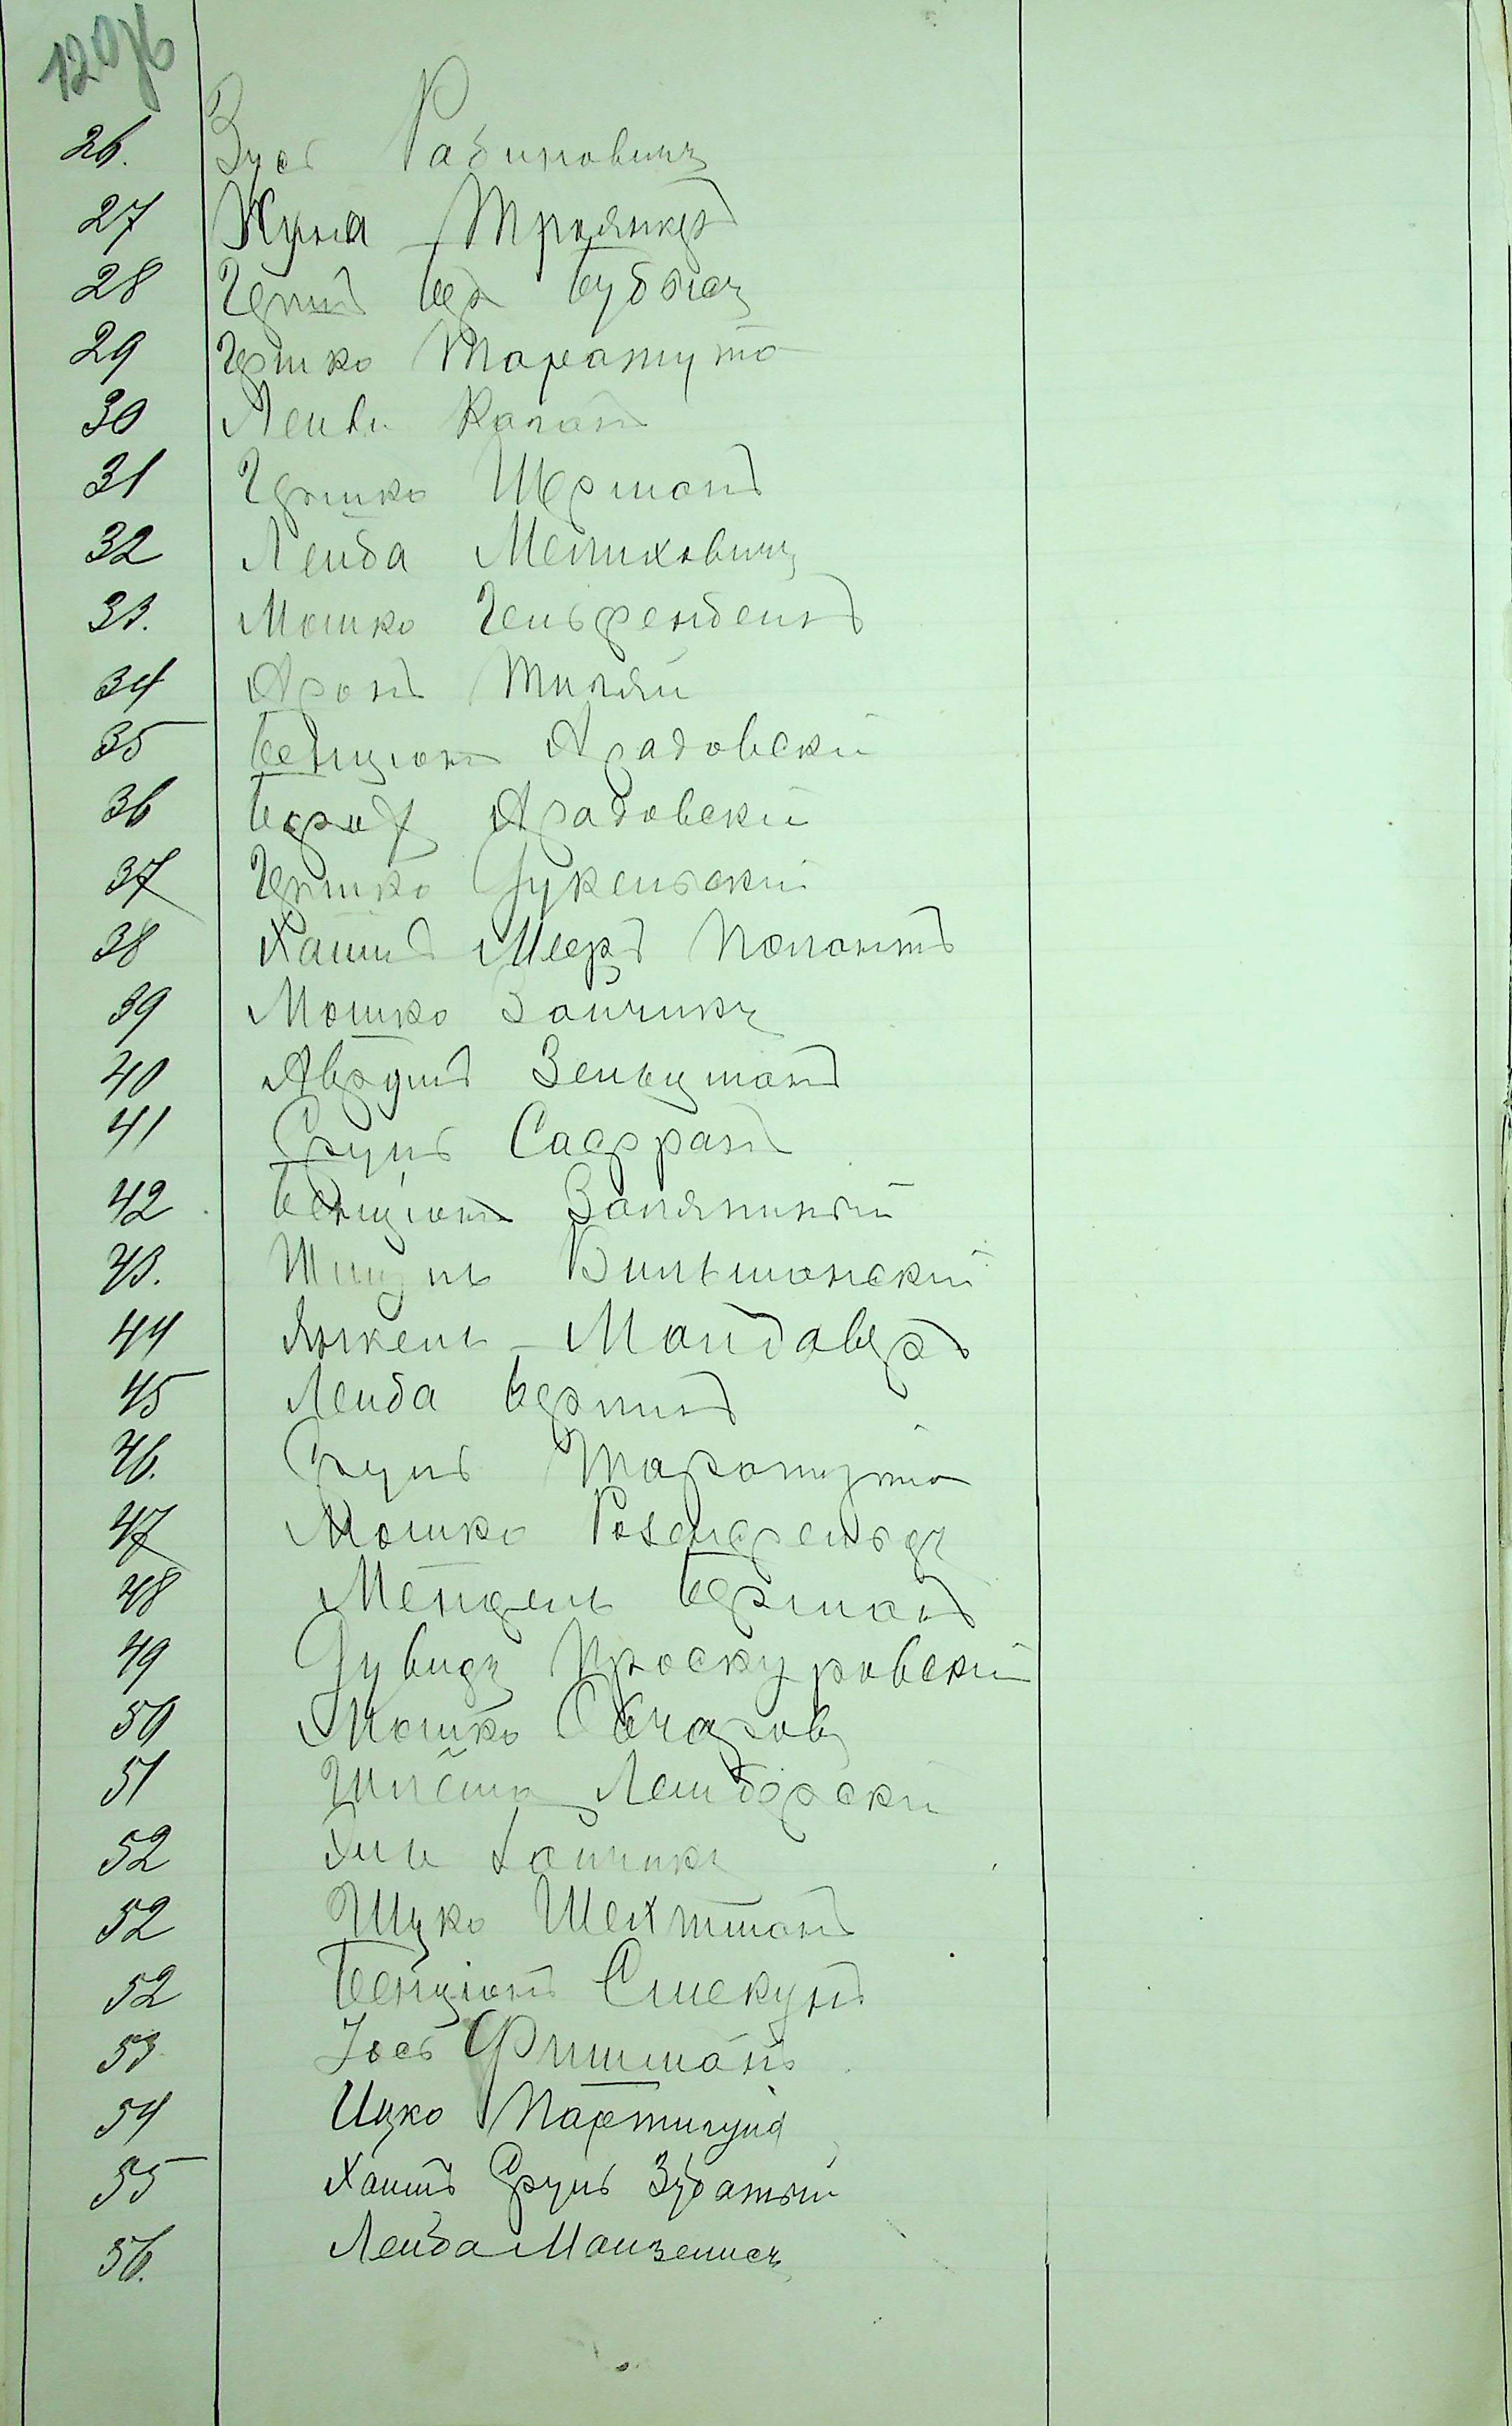 120об
26. Зусь Рабиновичъ
27 Куна Троянкеръ
28 Гершъ Бер Бубысъ
29 Гершко Таражуто
30 Лейви Каганъ
31 Гершко Шерманъ
32 Лейба Мелиховичъ
33. Мошко Гельфенбейнъ
34 Аронъ Тиляй
35 Бенционъ Арадовскій
36 Борох Арадовскій
37 Гершко Дукельскій
38 Хаимъ Мееръ Полонтъ
39 Мошко Зайчикъ
40 Авруминъ Зельцманъ
41 Сруль Сафранъ
42 Бенціонъ Заслятный
43. Шмуль Вильшанскій
44 Янкель Майдаверъ
45 Лейба Верлинъ
46. Сруль Таражуто
47 Мошко Розенфельдъ
48 Мендель Берманъ
49 Дувидъ Проскуровскій
50 Мошко Овчаров
51 Лемберскій
52 Хиль Зайчикъ
52 Ицко Шехтманъ
52 Бенціонъ Смекунъ
53 Іось Фишманъ
54 Ицко Партигулъ
55 Хаимъ Сруль Зубатый
56. Лейба Майзелисъ